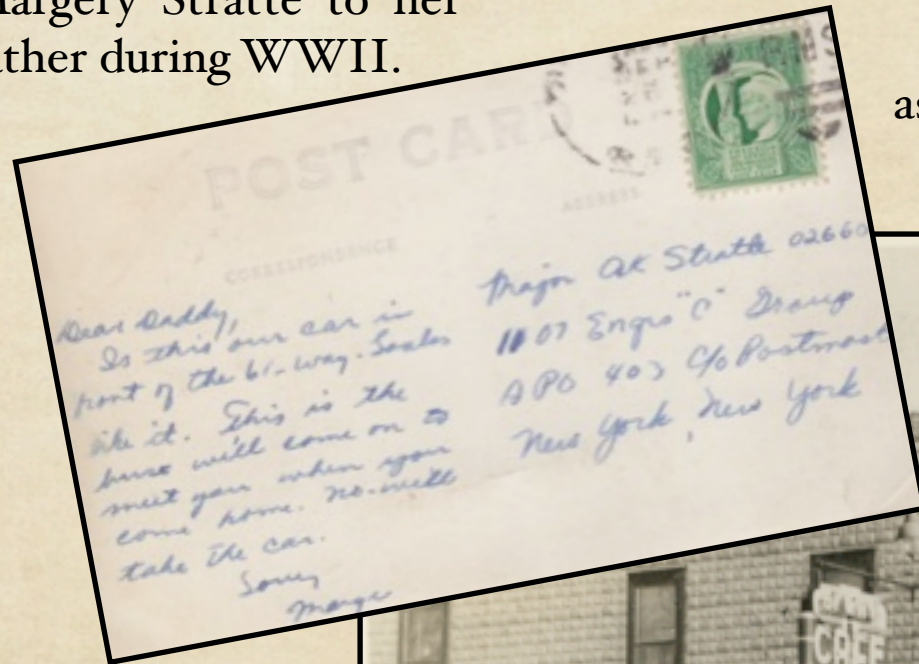 Margery Stratte to her
ather during WWII.
as
POST CARD
ADDRESS
CORRESPONDENCE
Dear Daddy,
Is this our car in
front of the bi-way. Looks
like it. This is the
buss we'll come on to
meet you when you
come home. no-we'll
take the car.
Marge
Major AK Stratte 02660
1107 Engrs "C" Group
APO 403 c/o Postmast
New York, New York
CAFE